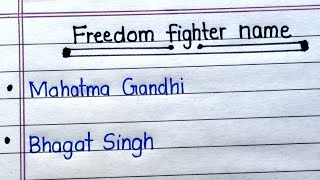 Freedom fighter name
• Mahatma Gandhi
• Bhagat Singh